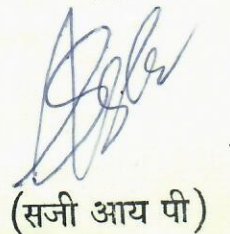 (सजी आय पी)